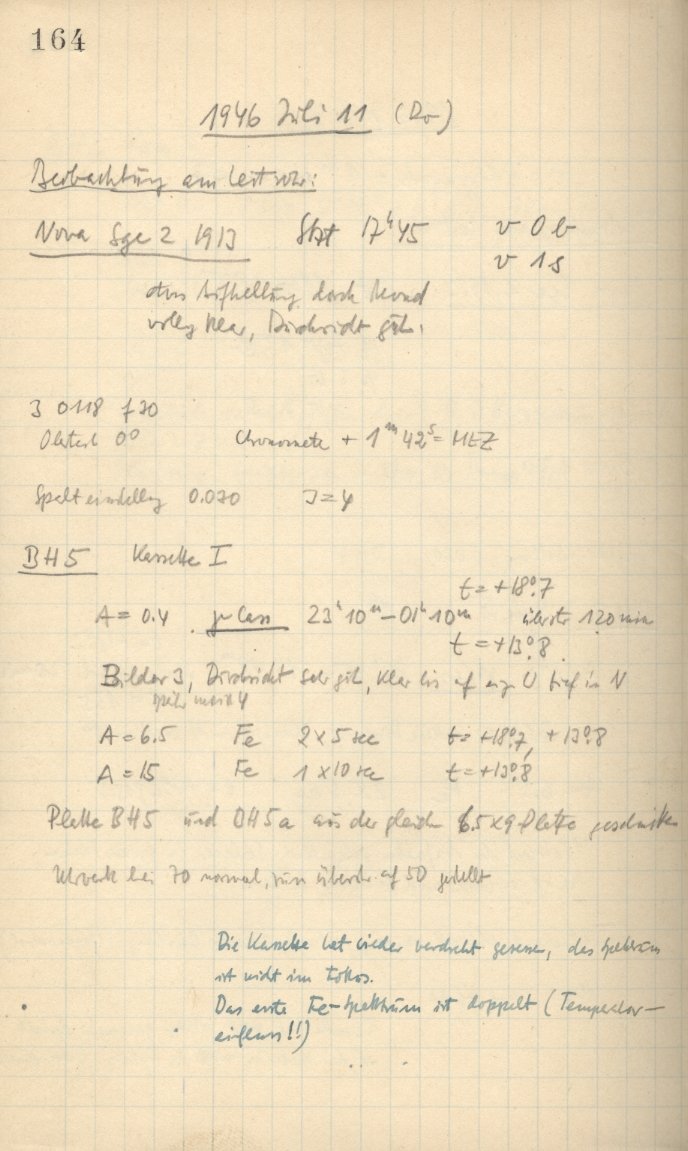 164
1946 Juli 11 (Do)
Beobachtung am Leitrohr:
Nova Sge 2 1913 Stzt 17ʰ45 v 0 b
v 1 s
Aufhellung durch Mond
völlig klar, Durchsicht gut.
J 0118 f 30
0°
Chronometer + 1ᵐ 42ˢ = MEZ
Spalteinstellung 0.030 J=4
BH5 Kassette I
t = +18°.7
A = 0.4 γ Cass 23ʰ10ᵐ–01ʰ10ᵐ 120 min
t = +13°.8
Bilder 3, Durchsicht sehr gut, klar bis auf tief in N
später meist 4
A = 6.5 Fe 2×5 sec t = +18°.7, +13°.8
A = 15 Fe 1×10 sec t = +13°.8
Platte BH5 und BH5a aus der gleichen 6.5×9 Platte geschnitten
Uhrwerk bei 70 normal, zum auf 50 gestellt
Die Kassette hat wieder verdreht gesessen, das Spektrum
ist nicht im Fokus.
Das erste Fe-Spektrum ist doppelt (Temperatur-
einfluss!!)